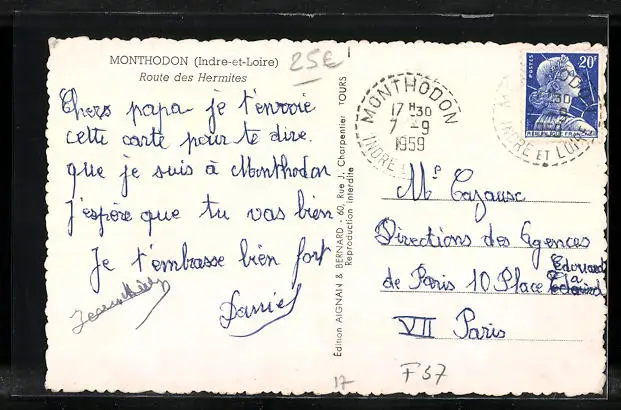 MONTHODON (Indre-et-Loire)
Route des Hermites
25€
Chers papa je t'envoie
cette carte pour te dire
que je suis à Monthodon
j'espère que tu vas bien
Je t'embrasse bien fort
Daniel
Édition AIGNAIN & BERNARD - 60, Rue J. Charpentier TOURS
Reproduction interdite
MONTHODON
17 H 30
7 - 9
1959
INDRE
POSTES
20F
INDRE ET LOIRE
Mr Cazausc
Directions des Agences
de Paris 10 Place Edouard
VII Paris
17
F37